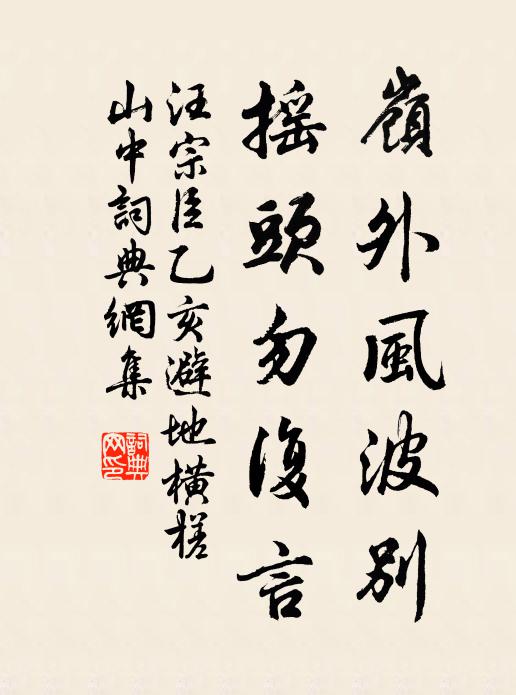 嶺外風波別
搖頭勿復言
汪宗臣乙亥避地橫槎
山中詞典網集
詞典
网印